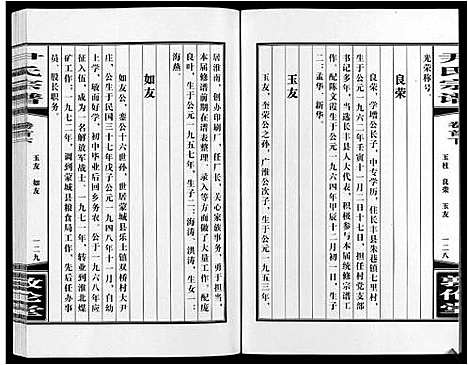 尹氏宗谱
卷首下
玉杜 良荣 玉友
一二八
敦伦堂
光荣称号。
良荣
良荣，学增公长子，中专学历，住长丰县朱巷镇七里村，
生于公元一九六二年壬寅十二月初二日，曾担任村党支部
书记多年，当选长丰县人大代表，积极参与本届统修宗谱工
作，配陈文霞生于公元一九六四年甲辰十二月初一日，生子
二：孟华、新华。
玉友
玉友，奎荣公之孙，广淮公次子，生于公元一九五三年，
尹氏宗谱
卷首下
玉友 如友
一二九
敦伦堂
居淮南，创办印刷厂，任厂长，关心家族大事，对
本届修谱前期在谱表整理、录入方面做了大量工作，配庞
良叶，生于公元一九五七年，生子二：海涛、洪涛，生女一：
海燕。
如友
如友公，銮公十六世孙，世居蒙城县乐土镇双桥村大尹
庄，公生于公元一九四八年戊子公元一九四八年十一月，自幼
上学，敏而好学，初中毕业后回乡务农，公于一九六八年应
征入伍，成为一名解放军战士，一九七一年转业到淮北煤
矿工作；一九七二年，调到蒙城县粮食局工作，先后任办事
员、股长职务。